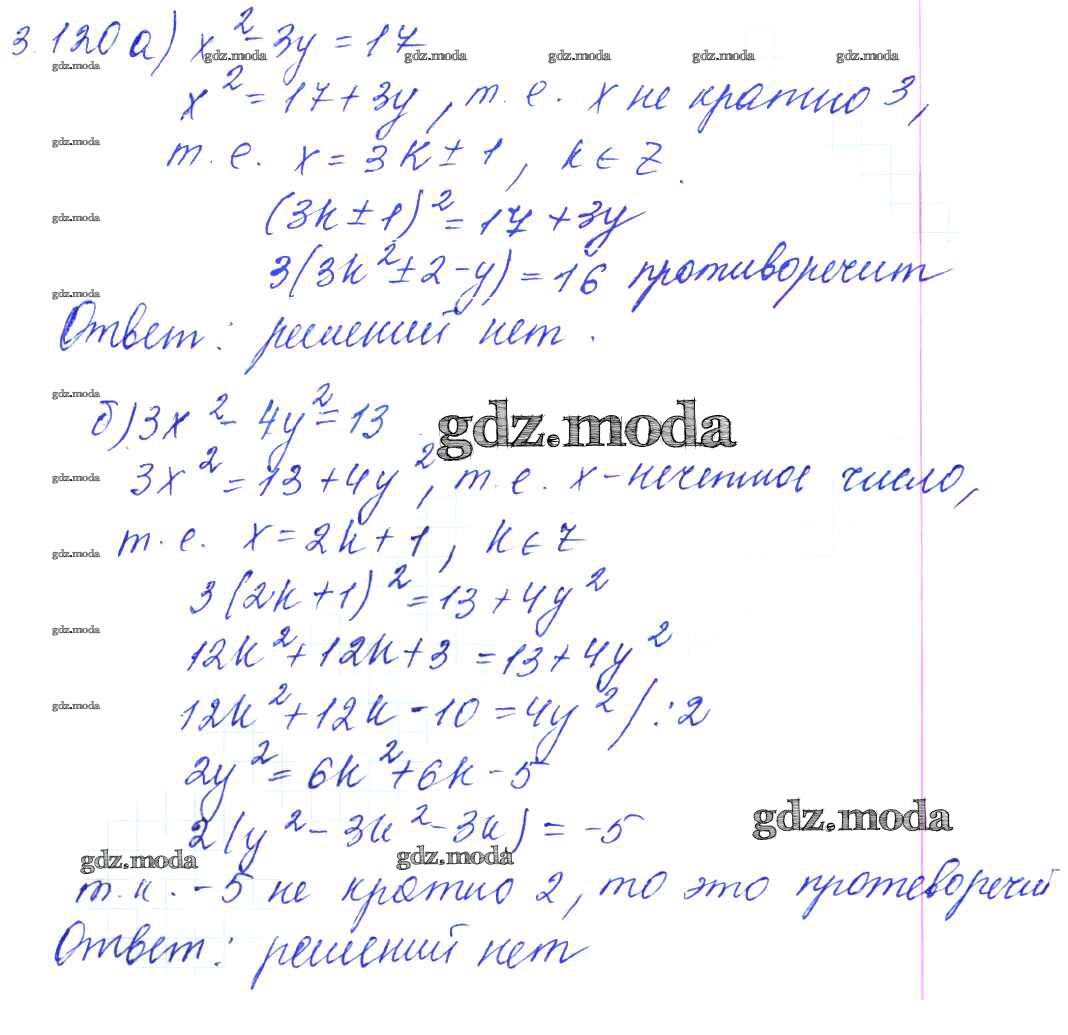 3.120 а) x² - 3y = 17
gdz.moda gdz.moda gdz.moda gdz.moda gdz.moda gdz.moda
x² = 17 + 3y, т. е. x не кратно 3,
gdz.moda
т. е. x = 3k ± 1, k ∈ Z.
(3k ± 1)² = 17 + 3y
gdz.moda
3(3k² ± 2 - y) = 16 противоречит
gdz.moda
Ответ: решений нет.
gdz.moda
б) 3x² - 4y² = 13
gdz.moda
3x² = 13 + 4y², т. е. x - нечетное число,
gdz.moda
т. е. x = 2k + 1, k ∈ Z
gdz.moda
3(2k + 1)² = 13 + 4y²
gdz.moda
12k² + 12k + 3 = 13 + 4y²
12k² + 12k - 10 = 4y² / : 2
gdz.moda
2y² = 6k² + 6k - 5
gdz.moda
2(y² - 3k² - 3k) = -5
gdz.moda gdz.moda
т. к. -5 не кратно 2, то это протеворечий
Ответ: решений нет